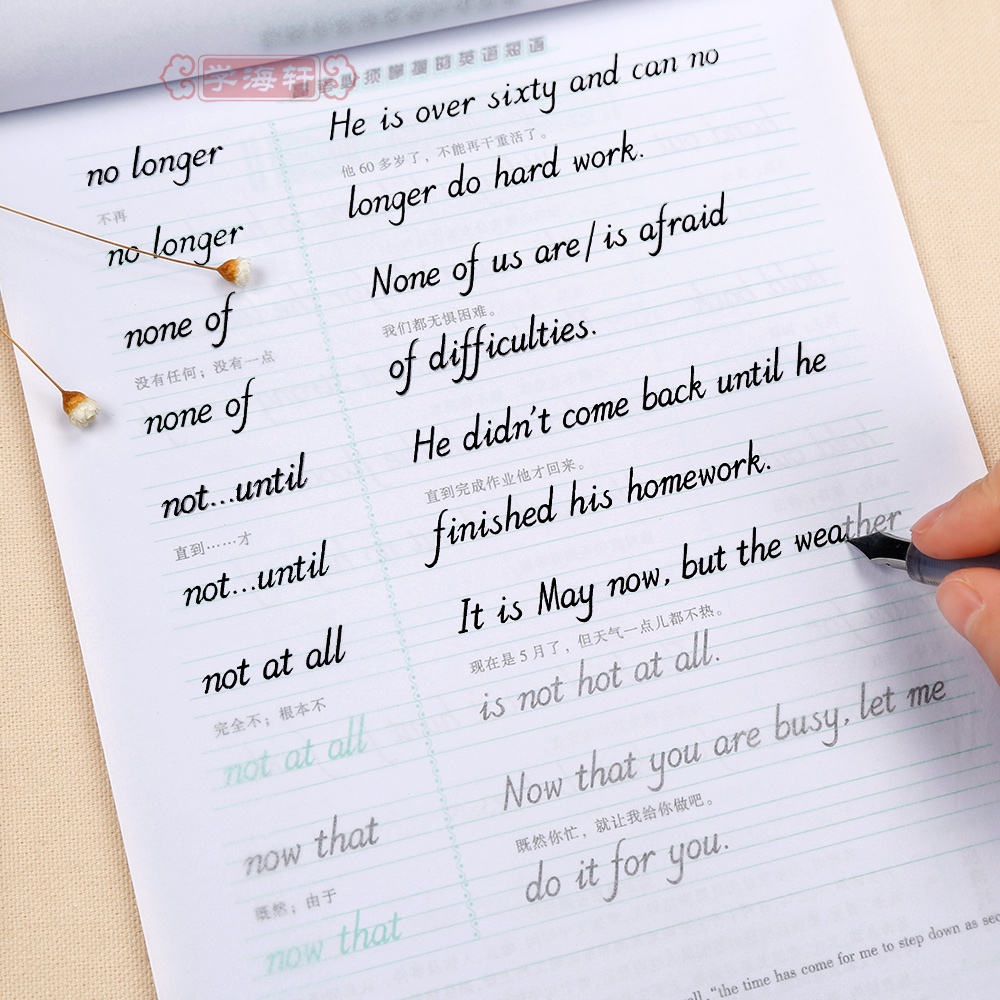 学海轩
必须掌握的英语短语
no longer
He is over sixty and can no
不再
他60多岁了，不能再干重活了。
no longer
longer do hard work.
none of
None of us are/is afraid
没有任何；没有一点
我们都无惧困难。
none of
of difficulties.
not...until
He didn't come back until he
直到……才
直到完成作业他才回来。
not...until
finished his homework.
not at all
It is May now, but the weather
完全不；根本不
现在是5月了，但天气一点儿都不热。
not at all
is not hot at all.
now that
Now that you are busy, let me
既然；由于
既然你忙，就让我给你做吧。
now that
do it for you.
"the time has come for me to step down as